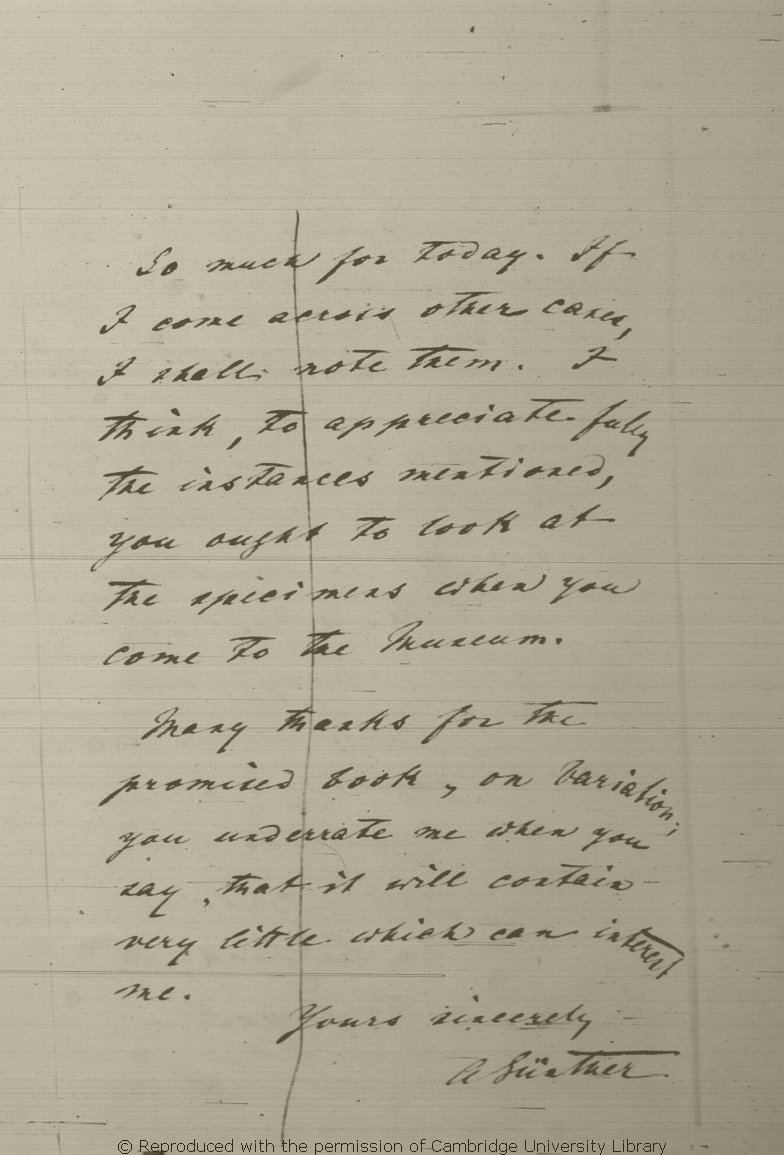 So much for today. If
I come across other cases,
I shall note them. I
think, to appreciate fully
the instances mentioned,
you ought to look at
the specimens when you
come to the Museum.
Many thanks for the
promised book, on Variation;
you underrate me when you
say, that it will contain
very little which can interest
me.
Yours sincerely
A Günther
© Reproduced with the permission of Cambridge University Library